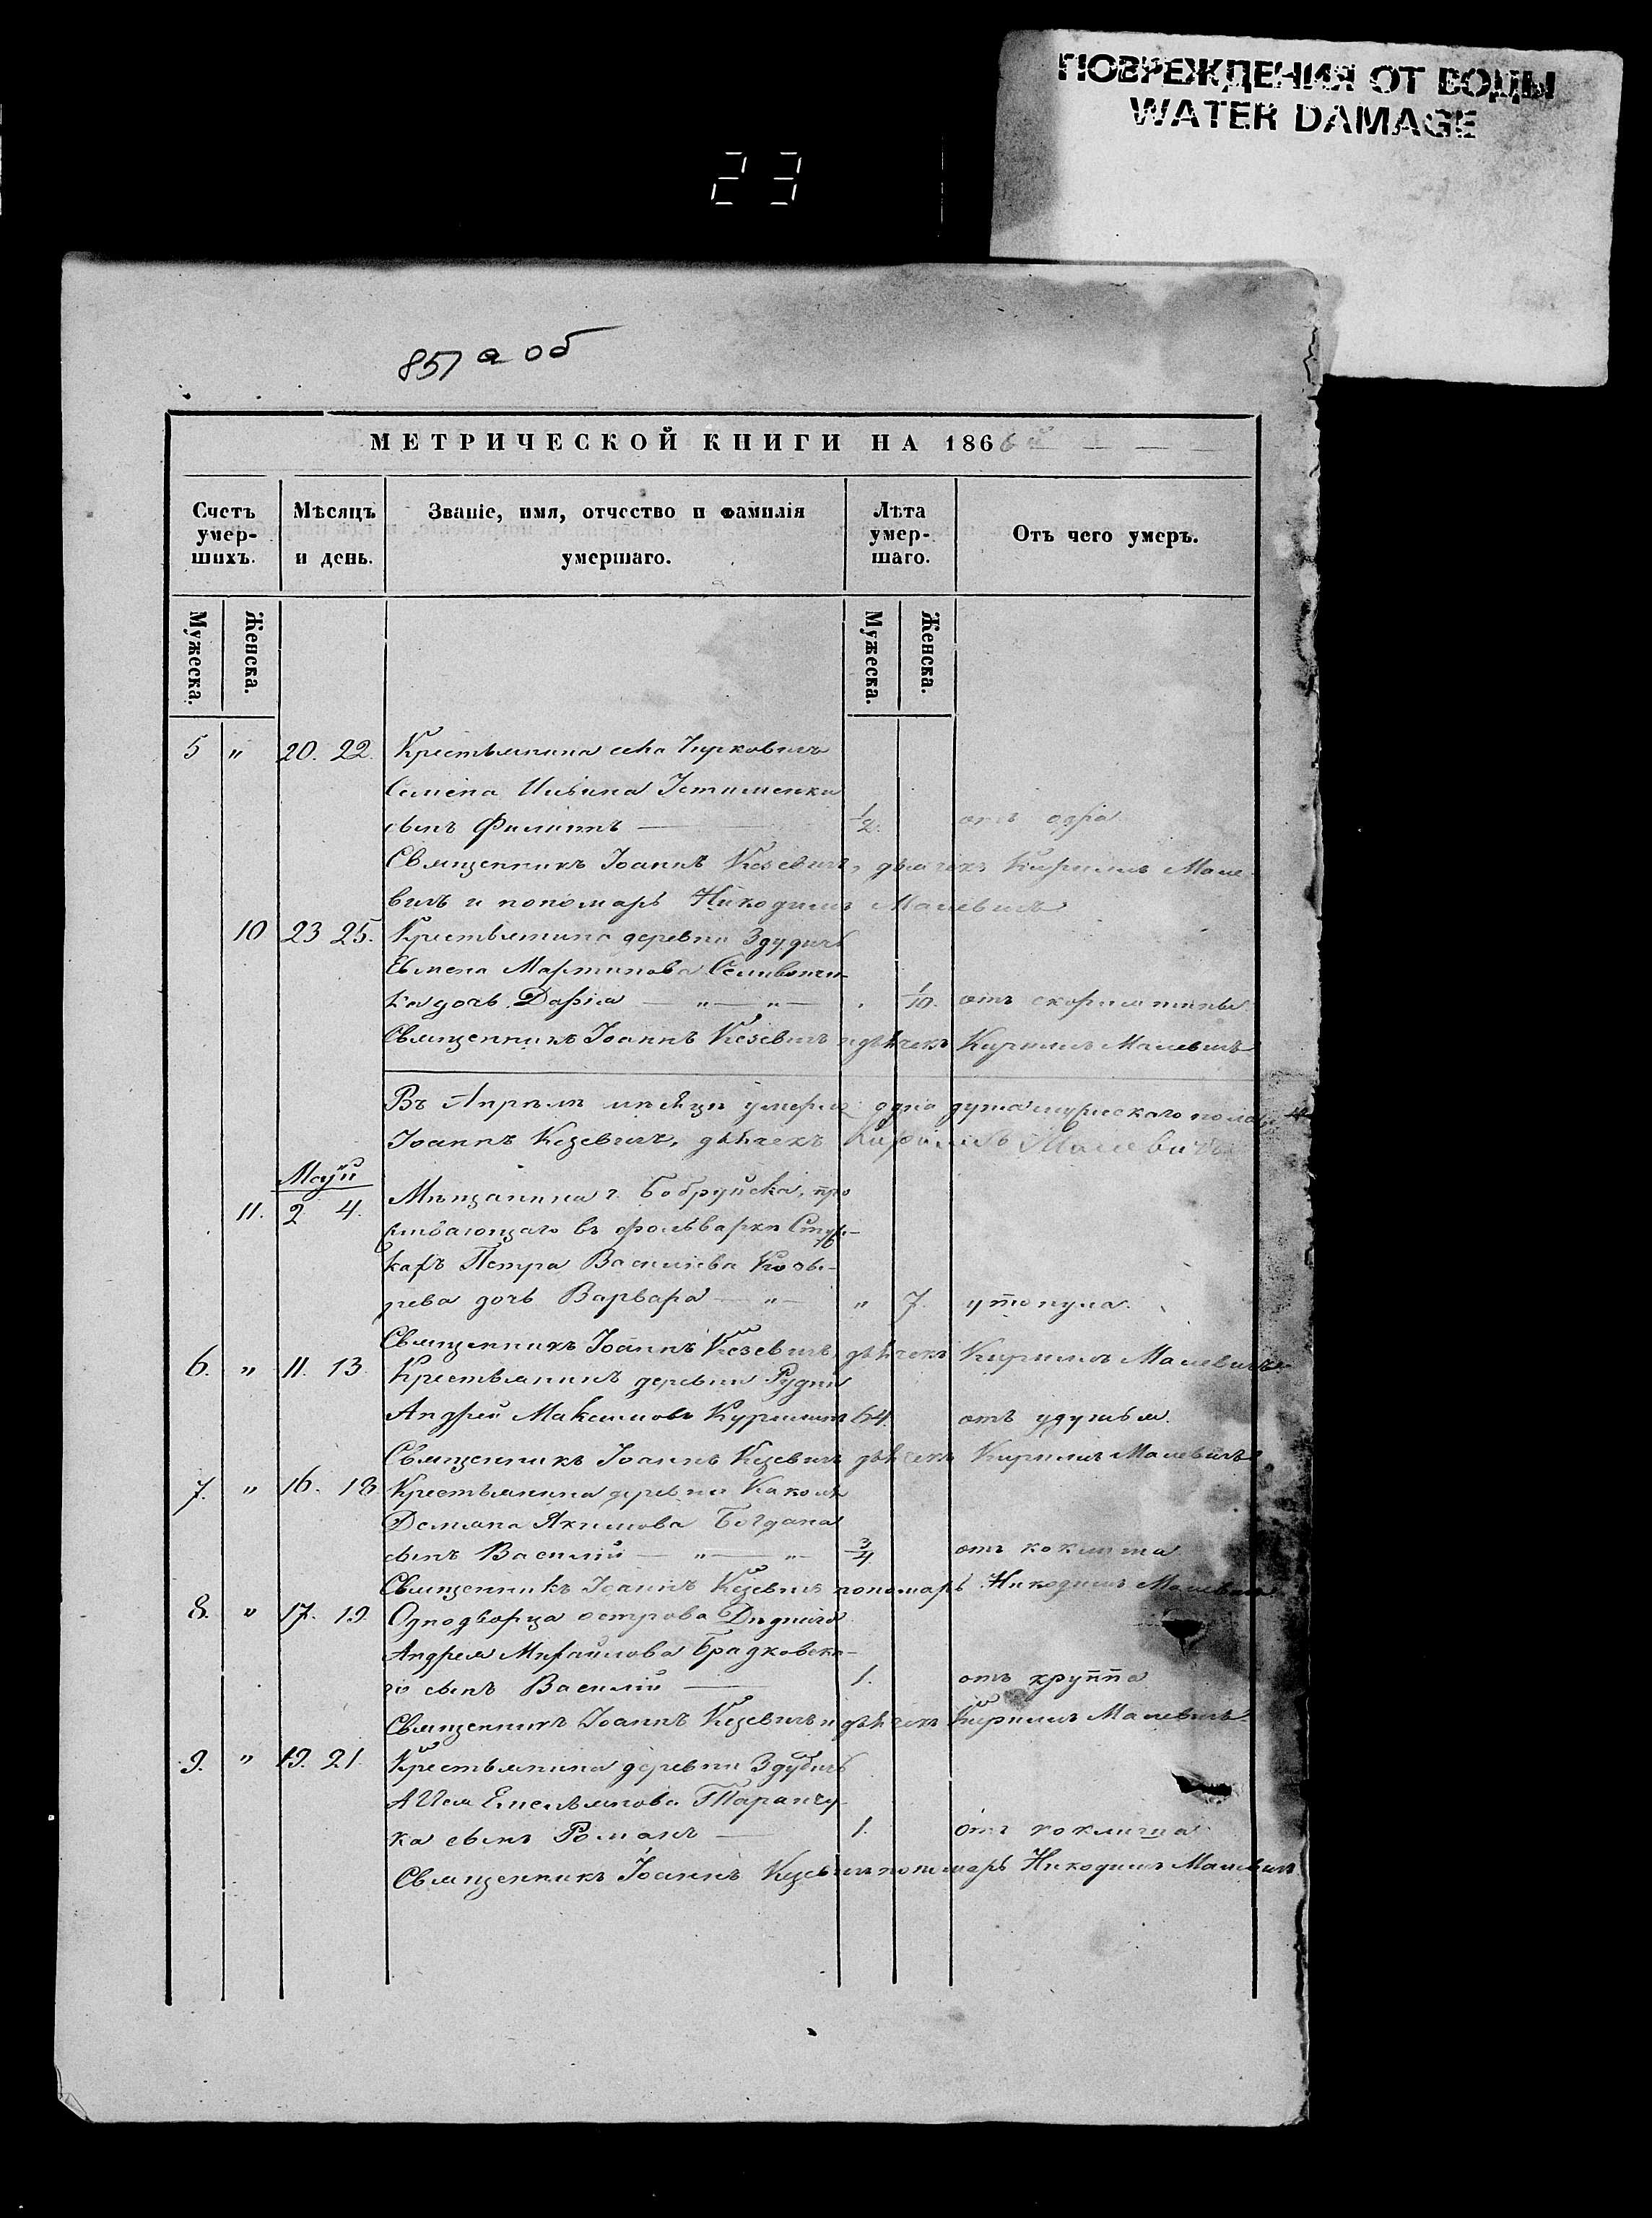 ПОВРЕЖДЕНИЯ ОТ ВОДЫ
WATER DAMAGE
23
851 а об
МЕТРИЧЕСКОЙ КНИГИ НА 1866й
Счетъ умершихъ. Мѣсяцъ и день. Званіе, имя, отчество и фамилія умершаго. Лѣта умершаго. Отъ чего умеръ.
Мужеска. Женска. Мужеска. Женска.
5 " 20. 22. Крестьянина села
Семена
сынъ Филиппъ 1/2.
Священникъ Іоаннъ Кезевичъ, дьячекъ Кириллъ Мале-
вичъ и пономарь Никодимъ Малевичъ
10 23 25. Крестьянина деревни Здудичъ
Мартинова
ка дочь Дарія — " — " — 1/10. отъ скорлатины.
Священникъ Іоаннъ Кезевичъ и дьячекъ Кириллъ Малевичъ
Въ Апрѣлѣ мѣсяцѣ умерла одна душа мужескаго пола
Іоаннъ Кезевичъ, дьячекъ Кириллъ Малевичъ
Май
11. 2 4. Мѣщанина г. Бобруйска, про
живающаго въ фольварки
Петра Васильева
рева дочь Варвара — " — " 7. утонула.
Священникъ Іоаннъ Кезевичъ, дьячекъ Кириллъ Малевичъ
6. " 11. 13. Крестьянинъ деревни Рудни
Андрей Максимовъ 64. отъ удушья.
Священникъ Іоаннъ Кезевичъ дьячекъ Кириллъ Малевичъ
7. " 16. 18 Крестьянина деревни Какель
Демьяна Якимова Богдана
сынъ Василій — " — " — 3/4 отъ коклюша
Священникъ Іоаннъ Кезевичъ пономарь Никодимъ Малевичъ
8. " 17. 19. Однодворца острова
Андрея Михайлова Брадковска-
го сынъ Василій — 1. отъ круппа
Священникъ Іоаннъ Кезевичъ и дьячекъ Кириллъ Малевичъ
9. " 19. 21. Крестьянина деревни Здудичъ
Емельянова Таранчу-
ка сынъ Романъ — 1. отъ коклюша
Священникъ Іоаннъ Кезевичъ пономарь Никодимъ Малевичъ